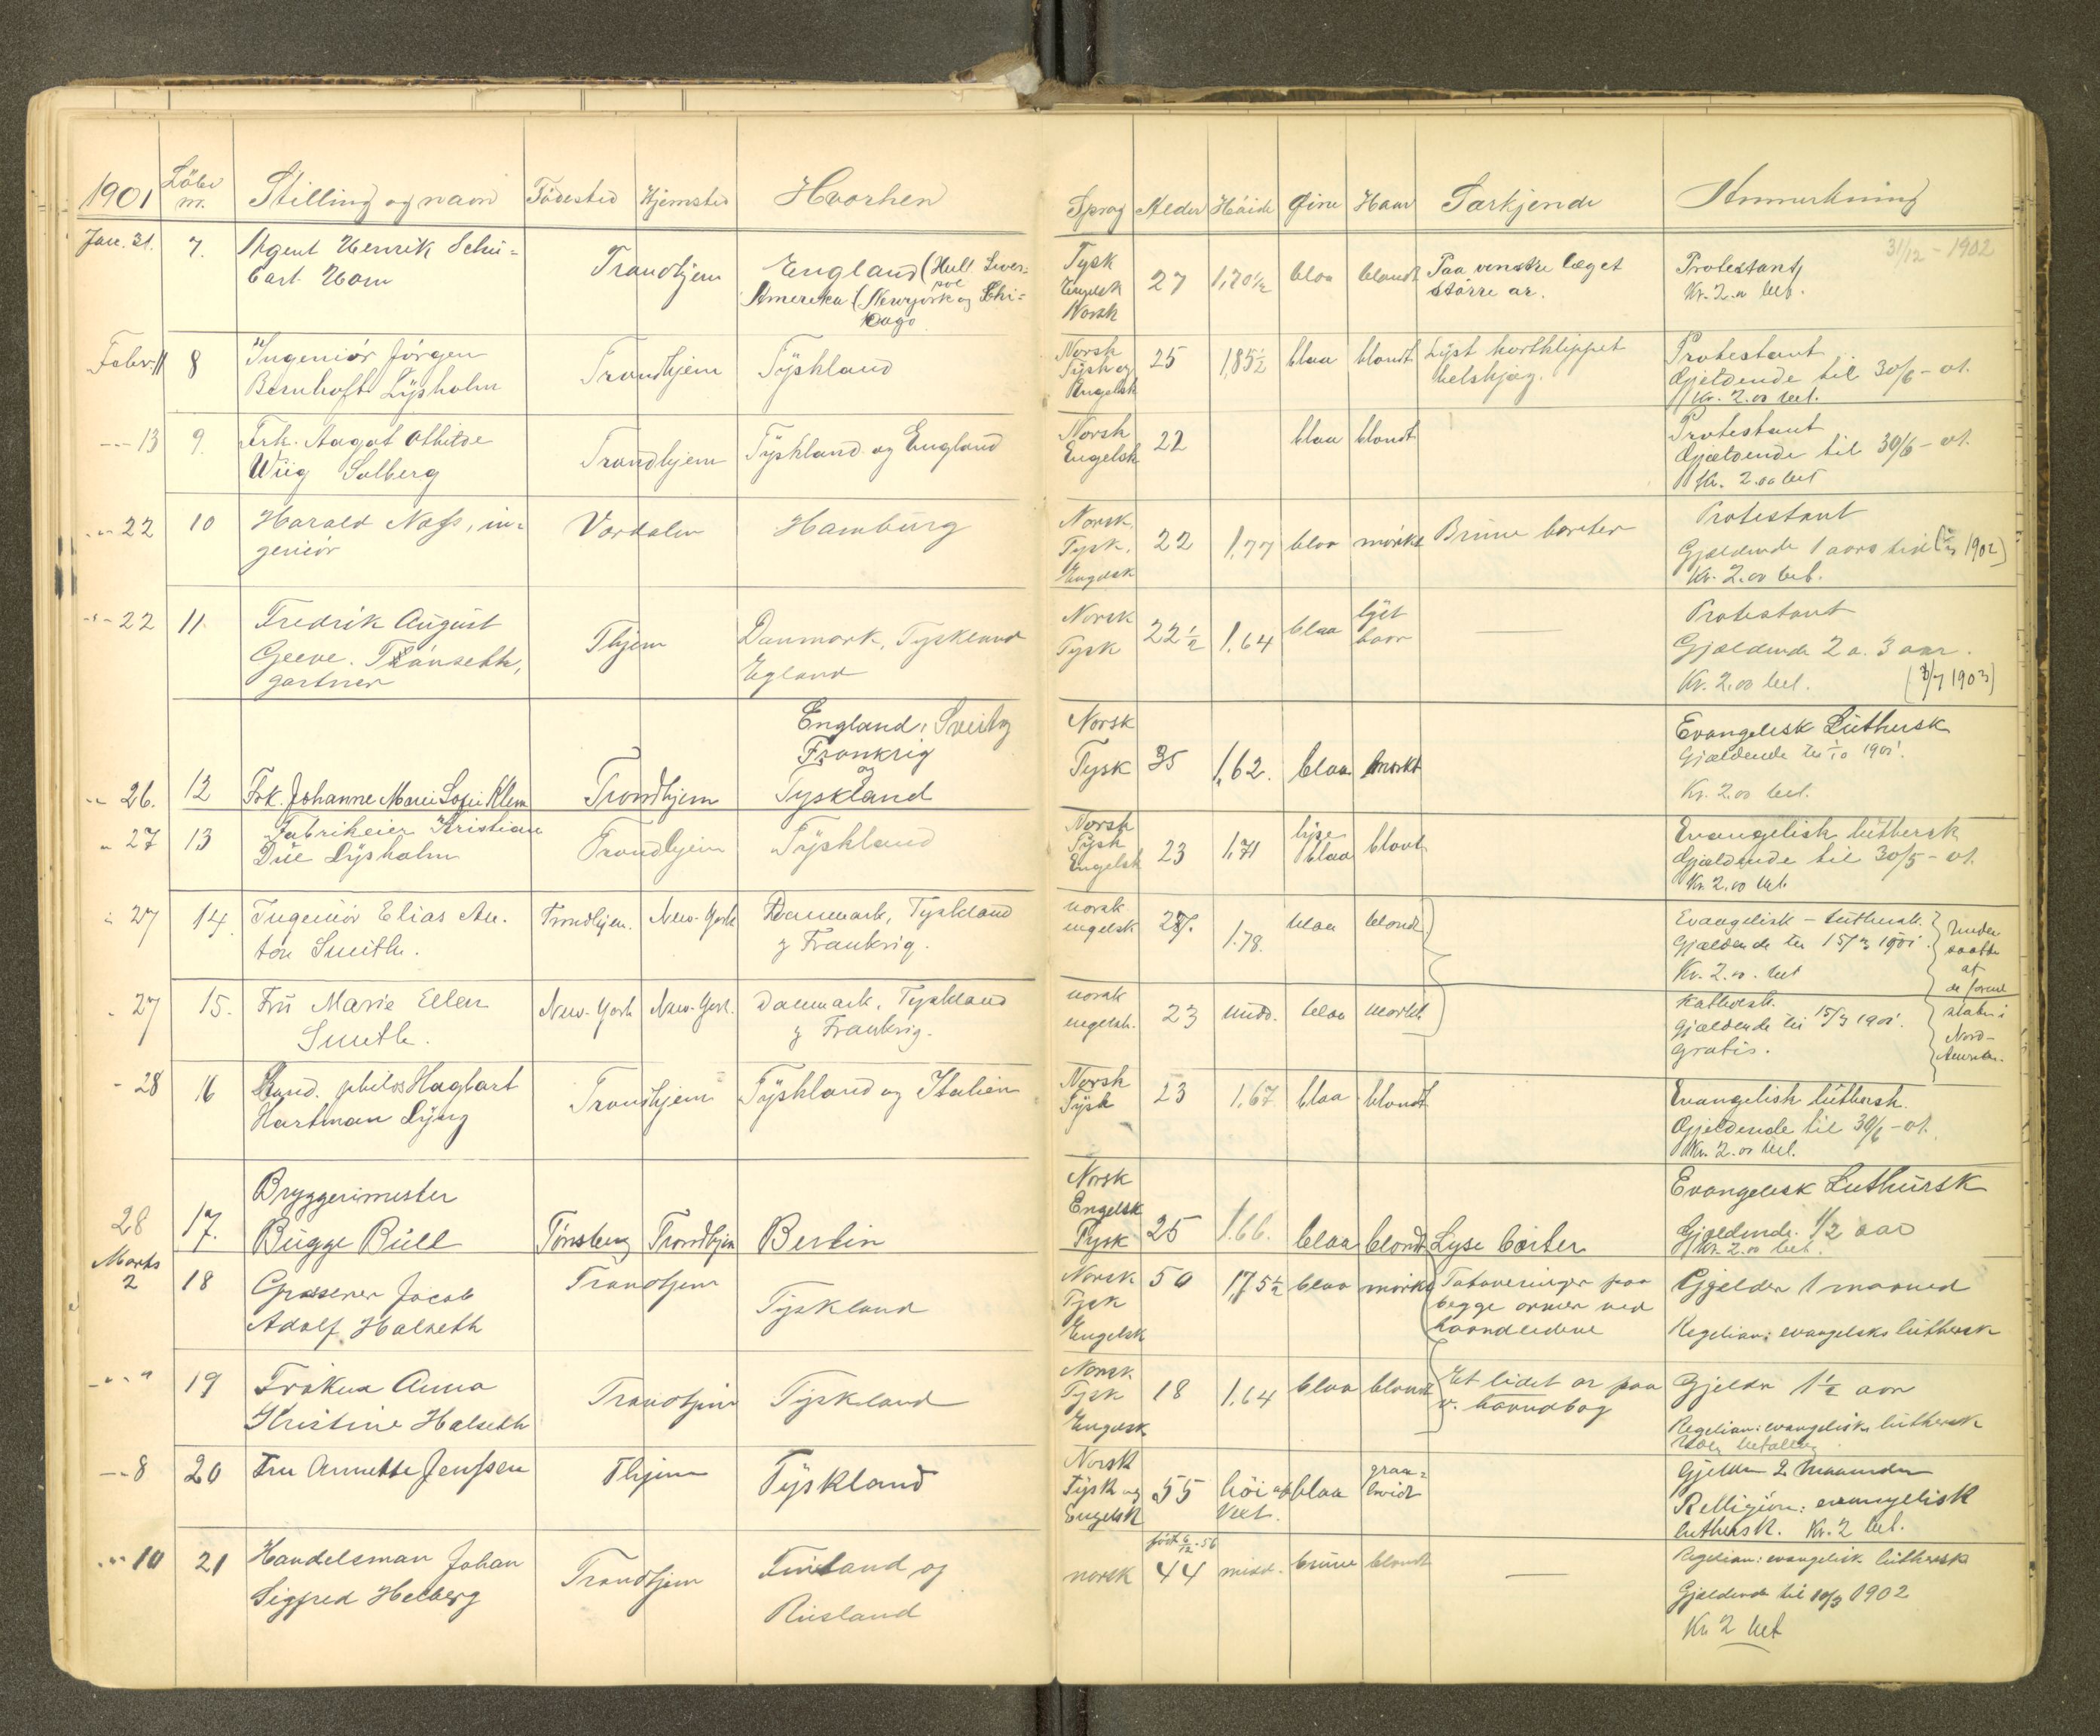 1901 Löbe nr. Stilling og navn Födested Hjemsted Hvorhen Sprog Alder Höide Öine Haar Særkjende Anmerkning
31/12 - 1902
Jan. 31. 7. Agent Henrik Schu-
bart Horn
Trondhjem
England (Hull Liver-
pool
Amerika (Newyork og Chi-
cago
Tysk
Engelsk
Norsk
27 1,70 1/2 blaa blondt
Paa venstre læget
större ar.
Protestant,
Kr. 2.00 bet.
Febr. 11 8 Ingeniör Jörgen
Bernhoft Lysholm
Trondhjem Tyskland
Norsk
Tysk og
Engelsk
25 1,85 1/2 blaa blondt
Lyst kortklippet
helskjæg.
Protestant
Gjeldende til 30/6 - 01.
Kr. 2.00 bet.
--- 13 9. Frk. Aagot Othilde
Wiig Solberg
Trondhjem Tyskland og England
Norsk
Engelsk
22 blaa blondt
Protestant
Gjældende til 30/6 - 01.
Kr. 2.00 bet
-"- 22 10 Harald Næss, in-
geniör
Værdalen Hamburg
Norsk,
Tysk,
Engelsk
22 1,77 blaa mörkt Brune barter
Protestant
Gjældende 1 aars tid 1902)
Kr. 2.00 bet.
-"- 22 11. Fredrik August
Geeve. Trånseth,
gartner
Thjem
Danmark, Tyskland
Egland
Norsk
Tysk
22 1/2 1,64 blaa
lyst
haar
Protestant
Gjældende 2 a. 3 aar.
Kr. 2.00 bet. (3/7 1903)
-"- 26. 12 Frk. Johanne Marie Sofie Klem
Trondhjem
England, Sveitz
Frankrig
og
Tyskland
Norsk
Tysk
35 1,62. blaa mörkt
Evangelisk Luthersk
Gjældende til 1/10 1901.
Kr. 2.00 bet.
" 27 13 Fabrikeier Kristian
Due Lysholm
Trondhjem Tyskland
Norsk
Tysk
Engelsk
23 1,71
lyse
blaa
blont.
Evangelisk luthersk
Gjældende til 30/5 - 01.
Kr. 2.00 bet.
" 27 14. Ingeniör Elias An-
ton Smith.
Trondhjem. New-York
Danmark, Tyskland
og Frankrig.
norsk
engelsk
27. 1.78. blaa blondt
Evangelisk - luthersk.
Gjældende til 15/3 1901.
Kr. 2.00. bet
Under
saatte
af
de foren
stater i
Nord-
Amerika.
" 27 15. Fru Marie Ellen
Smith.
New-York New-York.
Danmark, Tyskland
og Frankrig.
norsk
engelsk.
23 midd. blaa mörkt
Katholsk.
Gjældende til 15/3 1901.
Gratis.
" 28 16 Kand. philos Hagbart
Hartman Lyng
Trondhjem Tyskland og Italien
Norsk
Tysk
23 1,67 blaa blondt
Evangelisk luthersk.
Gjeldende til 30/6 - 01.
Kr. 2.00 bet.
28 17. Bryggerimester
Bugge Bull
Tönsberg Trondhjem Berlin
Norsk
Engelsk
Tysk
25 1.66. blaa blondt Lyse barter
Evangelisk Luthersk
Gjældende 1/2 aar
Kr. 2.00 bet.
Marts
2 18 Grosserer Jacob
Adolf Halseth
Trondhjem Tyskland
Norsk
Tysk
Engelsk
50 1,75 1/2 blaa mörkt
Tatoveringer paa
begge armer ved
haandledene
Gjelder 1 maaned
Regelian: evangelsks luthersk
-"-" 19 Fröken Anna
Kristine Halseth
Trondhjem Tyskland
Norsk
Tysk
Engelsk
18 1,64 blaa blondt
Et lidet ar paa
v. haandbag
Gjelder 1 1/2 aar
Regelian: evangelisk luthersk
-"- 8 20 Fru Annette Jenssen
Thjem Tyskland
Norsk
Tysk og
Engelsk
55
höi af
vext.
blaa
graa-
hvidt
Gjelder 2 maaneder
Relligion: evangelisk
luthersk. Kr. 2 bet.
-"- 10 21 Handelsman Johan
Sigfred Helberg
Trondhjem
Finland og
Rusland
norsk
födt 6/12 - 56
44 midd. brune blondt
Regelian: evangelisk luthersk
Gjældende til 10/3 1902
Kr. 2 bet